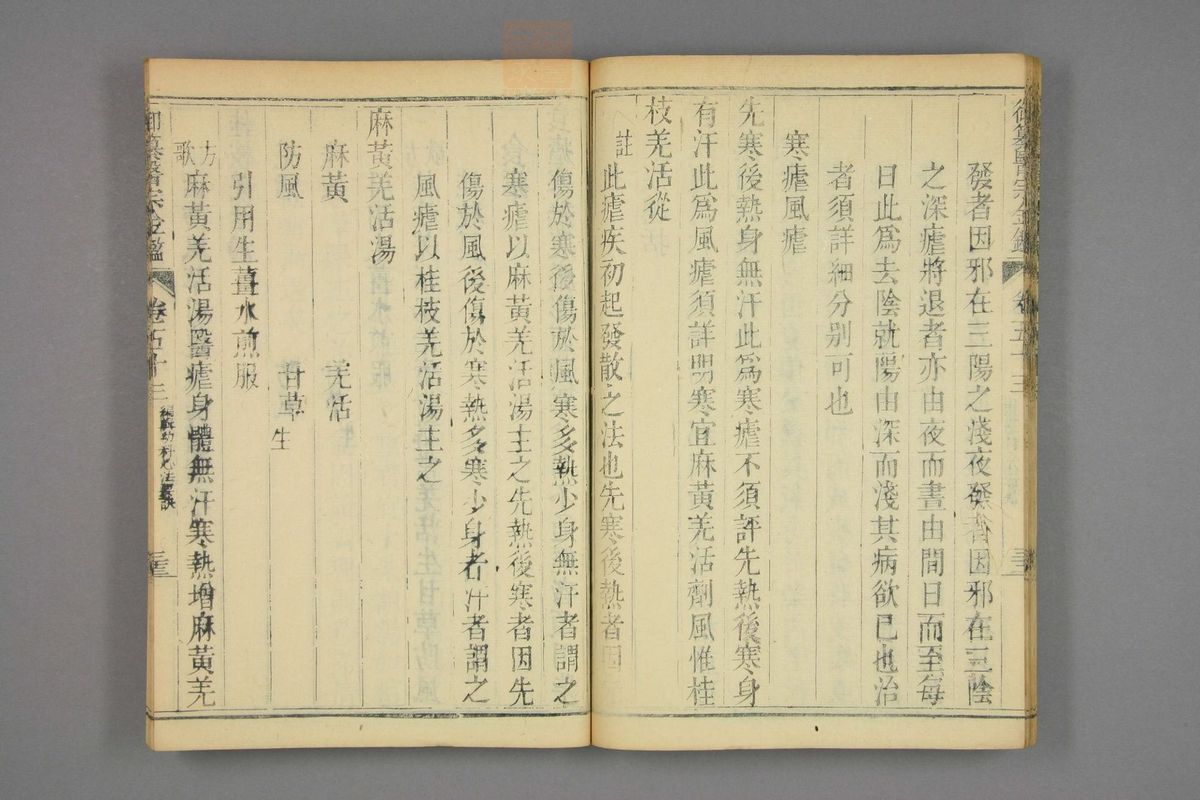 發者因邪在三陽之淺夜發者因邪在三陰
之深瘧將退者亦由夜而晝由間日而至每
日此爲去陰就陽由深而淺其病欲已也治
者須詳細分别可也
寒瘧風瘧
先寒後熱身無汗此爲寒瘧不須評先熱後寒身
有汗此爲風瘧須詳明寒宜麻黃羌活劑風惟桂
枝羌活從
註
此瘧疾初起發散之法也先寒後熱者因
先傷於寒後傷於風寒多熱少身無汗者謂之
寒瘧以麻黃羌活湯主之先熱後寒者因先
傷於風後傷於寒熱多寒少身有汗者謂之
風瘧以桂枝羌活湯主之
麻黃羌活湯
麻黃 羌活
防風 甘草生
引用生薑水煎服
方歌
麻黃羌活湯醫瘧身體無汗寒熱增麻黃羌
御纂醫宗金鑑 卷五十三 編輯幼科心法要訣 三三